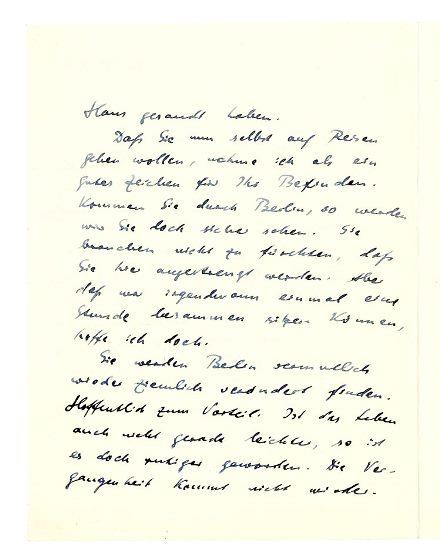 Haus gesandt haben.
Daß Sie nun selbst auf Reisen
gehen wollen, nehme ich als ein
gutes Zeichen für Ihr Befinden.
Kommen Sie durch Berlin, so werden
wir Sie doch sicher sehen. Sie
brauchen nicht zu fürchten, daß
Sie hier angestrengt werden. Aber
daß wir irgendwann einmal eine
Stunde beisammen sitzen können,
hoffe ich doch.
Sie werden Berlin vermutlich
wieder ziemlich verändert finden.
Hoffentlich zum Vorteil. Ist das Leben
auch nicht gerade leichter, so ist
es doch ruhiger geworden. Die Ver-
gangenheit kommt nicht wieder.